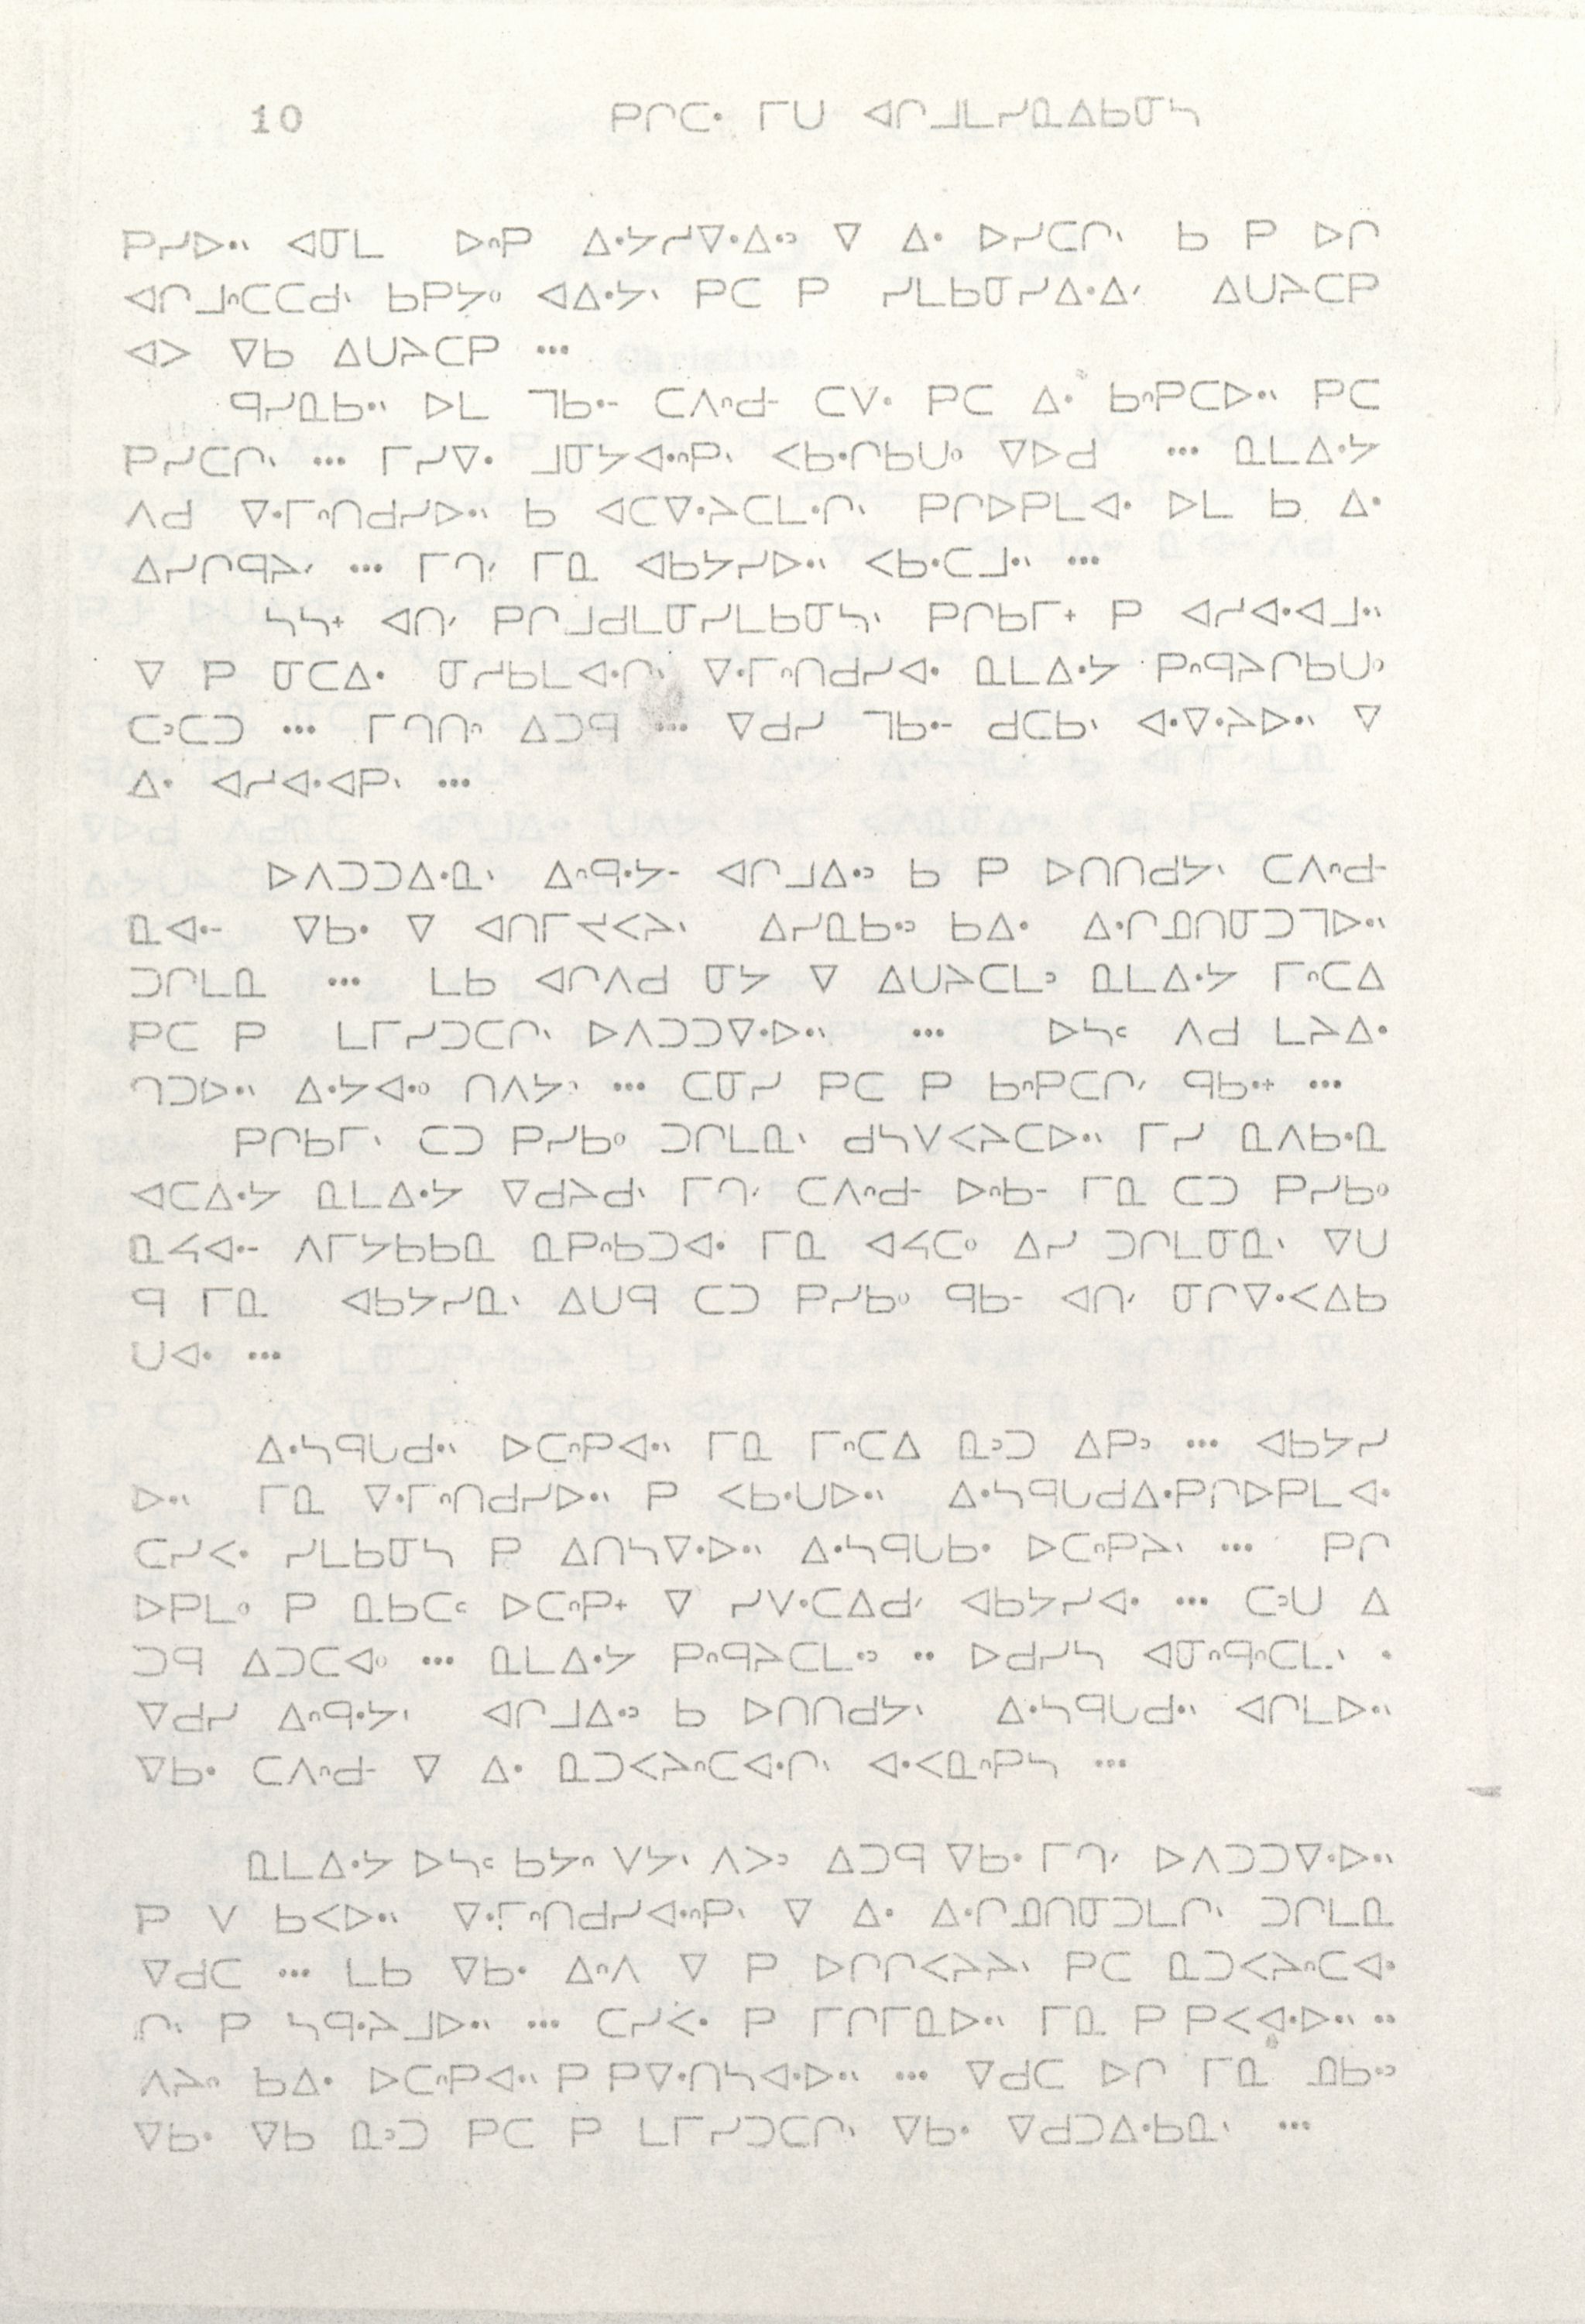 10 ᑭᒋᑕᐧ ᒥᑌ ᐊᒋᒧᒪᓯᓇᐃᑲᓂᓴ
ᑭᓯᐅᐧᐠ ᐊᓂᒪ ᐅᐢᑭ ᐃᐧᔭᓯᐁᐧᐃᐧᐣ ᐁ ᐃᐧ ᐅᓯᑕᒋᐠ ᑲ ᑭ ᐅᒋ
ᐊᒋᒧᐢᑕᑕᑯᐠ ᑲᑭᔭᐤ ᐊᐃᐧᔭᐠ ᑭᑕ ᑭ ᓯᒪᑲᓂᓯᐃᐧᐃᐟ ᐃᑌᔨᑕᑭ
ᐊᐳ ᐁᑲ ᐃᑌᔨᑕᑭ ...
ᑫᓯᓇᑲᐧᐠ ᐅᒪ ᒣᑲᐧᐨ ᑕᐱᐢᑯᐨ ᑕᐯᐧ ᑭᑕ ᐃᐧ ᑲᐢᑭᑕᐅᐧᐠ ᑭᑕ
ᑭᓯᑕᒋᐠ ... ᒥᓯᐁᐧ ᒧᓂᔭᐊᐧᐢᑭᐠ ᐸᑲᐧᒋᑲᑌᐤ ᐁᐅᑯ ... ᓇᒪᐃᐧᔭ
ᐱᑯ ᐁᐧᒥᐢᑎᑯᓯᐅᐧᐠ ᑲ ᐊᑕᐁᐧᔨᑕᒪᐧᒋᐠ ᑭᒋᐅᑭᒪᐊᐧ ᐅᒪ ᑲ ᐃᐧ
ᐃᓯᒋᑫᔨᐟ ... ᒥᒉᐟ ᒥᓇ ᐊᑲᔭᓯᐅᐧᐠ ᐸᑲᐧᑕᒧᐧᐠ ...
ᓴᓴᐩ ᐊᑎᐟ ᑭᒋᒧᑯᒪᓂᓯᒪᑲᓂᓴᐠ ᑭᒋᑲᒥᐩ ᑭ ᐊᓱᐊᐧᐊᒧᐧᐠ
ᐁ ᑭ ᓂᑕᐃᐧ ᓂᓱᑲᒪᐊᐧᒋᐠ ᐁᐧᒥᐢᑎᑯᓯᐊᐧ ᓇᒪᐃᐧᔭ ᑭᐢᑫᔨᒋᑲᑌᐤ
ᑕᐣᑕᑐ ... ᒥᒉᑎᐢ ᐃᑐᑫ ... ᐁᑯᓯ ᒣᑲᐧᐨ ᑯᑕᑲᐠ ᐊᐧᐁᐧᔨᐅᐧᐠ ᐁ
ᐃᐧ ᐊᓱᐊᐧᐊᑭᐠ ...
ᐅᐱᑐᑐᐃᐧᓇᐠ ᐃᐢᑫᐧᔭᐨ ᐊᒋᒧᐃᐧᐣ ᑲ ᑭ ᐅᑎᑎᑯᔭᐠ ᑕᐱᐢᑯᐨ
ᓇᐊᐧᐨ ᐁᑲᐧ ᐁ ᐊᑎᒥᔪᐸᔨᐠ ᐃᓯᓇᑲᐧᐣ ᑲᐃᐧ ᐃᐧᒋᓈᑎᓂᑐᒣᐅᐧᐠ
ᑐᒋᒪᓇ ... ᒪᑲ ᐊᒋᐱᑯ ᓂᔭ ᐁ ᐃᑌᔨᑕᒪᐣ ᓇᒪᐃᐧᔭ ᒥᐢᑕᐃ
ᑭᑕ ᑭ ᒪᒥᓯᑐᑕᒋᐠ ᐅᐱᑐᑐᐁᐧᐅᐧᐠ ... ᐅᓴᒼ ᐱᑯ ᒪᔨᐃᐧ
ᒉᑐᐅᐧᐠ ᐃᐧᔭᐊᐧᐤ ᑎᐱᔭᐣ ... ᑕᓂᓯ ᑭᑕ ᑭ ᑲᐢᑭᑕᒋᐟ ᑫᑲᐧᐩ ...
ᑭᒋᑲᒥᐠ ᑕᑐ ᑭᓯᑲᐤ ᑐᒋᒪᓇᐠ ᑯᓴᐯᐸᔨᑕᐅᐧᐠ ᒥᓯ ᓇᐱᑲᐧᓇ
ᐊᑕᐃᐧᔭ ᓇᒪᐃᐧᔭ ᐁᑯᔨᑯᐠ ᒥᒉᐟ ᑕᐱᐢᑯᐨ ᐅᐢᑲᐨ ᒥᓇ ᑕᑐ ᑭᓯᑲᐤ
ᓇᔭᐊᐧᐨ ᐱᒥᔭᑲᑲᓇ ᓇᑭᐢᑲᑐᐊᐧ ᒥᓇ ᐊᔭᑕᐤ ᐃᓯ ᑐᒋᒪᓂᓇᐠ ᐁᑌ
ᑫ ᒥᓇ ᐊᑲᔭᓯᓇᐠ ᐃᑌᑫ ᑕᑐ ᑭᓯᑲᐤ ᑫᑲᐨ ᐊᑎᐟ ᓂᒋᐁᐧᐸᐃᑲ
ᑌᐊᐧ ...
ᐃᐧᓴᑫᒐᑯᐧᐠ ᐅᑕᐢᑭᐊᐧᐠ ᒥᓇ ᒥᐢᑕᐃ ᓇᐣᑐ ᐃᑭᐣ ... ᐊᑲᔭᓯ
ᐅᐧᐠ ᒥᓇ ᐁᐧᒥᐢᑎᑯᓯᐅᐧᐠ ᑭ ᐸᑲᐧᑌᐅᐧᐠ ᐃᐧᓴᑫᒐᑯᐃᐧᑭᒋᐅᑭᒪᐊᐧ
ᑕᓯᐸᐧ ᓯᒪᑲᓂᓴ ᑭ ᐃᑎᓴᐁᐧᐅᐧᐠ ᐃᐧᓴᑫᒐᑲᐧ ᐅᑕᐢᑭᔨᐠ ... ᑭᒋ
ᐅᑭᒪᐤ ᑭ ᓇᑲᑕᒼ ᐅᑕᐢᑭᐩ ᐁ ᓯᐯᐧᑕᐃᑯᐟ ᐊᑲᔭᓯᐊᐧ ... ᑕᐣᑌ ᐃ
ᑐᑫ ᐃᑐᑕᐊᐤ ... ᓇᒪᐃᐧᔭ ᑭᐢᑫᔨᑕᒪᐧᐣ .. ᐅᑯᓯᓴ ᐊᓂᐢᑫᐢᑕᒪᐠ .
ᐁᑯᓯ ᐃᐢᑫᐧᔭᐠ ᐊᒋᒧᐃᐧᐣ ᑲ ᐅᑎᑎᑯᔭᐠ ᐃᐧᓴᑫᒐᑯᐧᐠ ᐊᒋᒪᐅᐧᐠ
ᐁᑲᐧ ᑕᐱᐢᑯᐨ ᐁ ᐃᐧ ᓇᑐᐸᔨᐢᑕᐊᐧᒋᐠ ᐊᐧᐸᓇᐢᑭᓴ ...
ᓇᒪᐃᐧᔭ ᐅᓴᒼ ᑲᔭᐢ ᐯᔭᐠ ᐱᓯᒼ ᐃᑐᑫ ᐁᑲᐧ ᒥᒉᐟ ᐅᐱᑐᑐᐁᐧᐅᐧᐠ
ᑭ ᐯ ᑲᐸᐅᐧᐠ ᐁᐧᒥᐢᑎᑯᓯᐊᐧᐢᑭᐠ ᐁ ᐃᐧ ᐃᐧᒋᓈᑎᓂᑐᒪᒋᐠ ᑐᒋᒪᓇ
ᐁᑯᑕ ... ᒪᑲ ᐁᑲᐧ ᐃᐢᐱ ᐁ ᑭ ᐅᒋᒋᐸᔨᔨᐠ ᑭᑕ ᓇᑐᐸᔨᐢᑕᐊᐧ
ᒋᐠ ᑭ ᓴᑫᐧᔨᒧᐅᐧᐠ ... ᑕᓯᐸᐧ ᑭ ᒥᒋᒥᓇᐅᐧᐠ ᒥᓇ ᑭ ᑭᐸᐊᐧᐅᐧᐠ ..
ᐱᔨᐢ ᑲᐃᐧ ᐅᑕᐢᑭᐊᐧᐠ ᑭ ᑭᐁᐧᑎᓴᐊᐧᐅᐧᐠ ... ᐁᑯᑕ ᐅᒋ ᒥᓇ ᓈᑲᐧᐣ
ᐁᑲᐧ ᐁᑲ ᓇᐣᑐ ᑭᑕ ᑭ ᒪᒥᓯᑐᑕᒋᐠ ᐁᑲᐧ ᐁᑯᑐᐃᐧᑲᓇᐠ ...